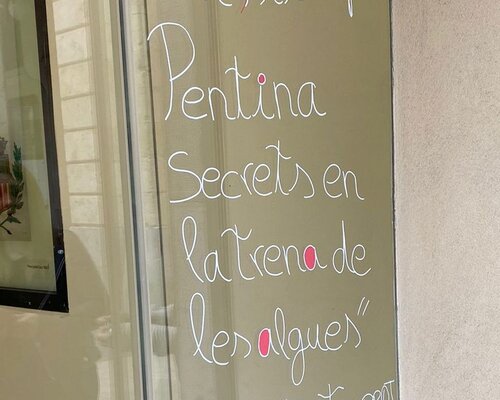 Pentina
Secrets en
la trena de
les algues"